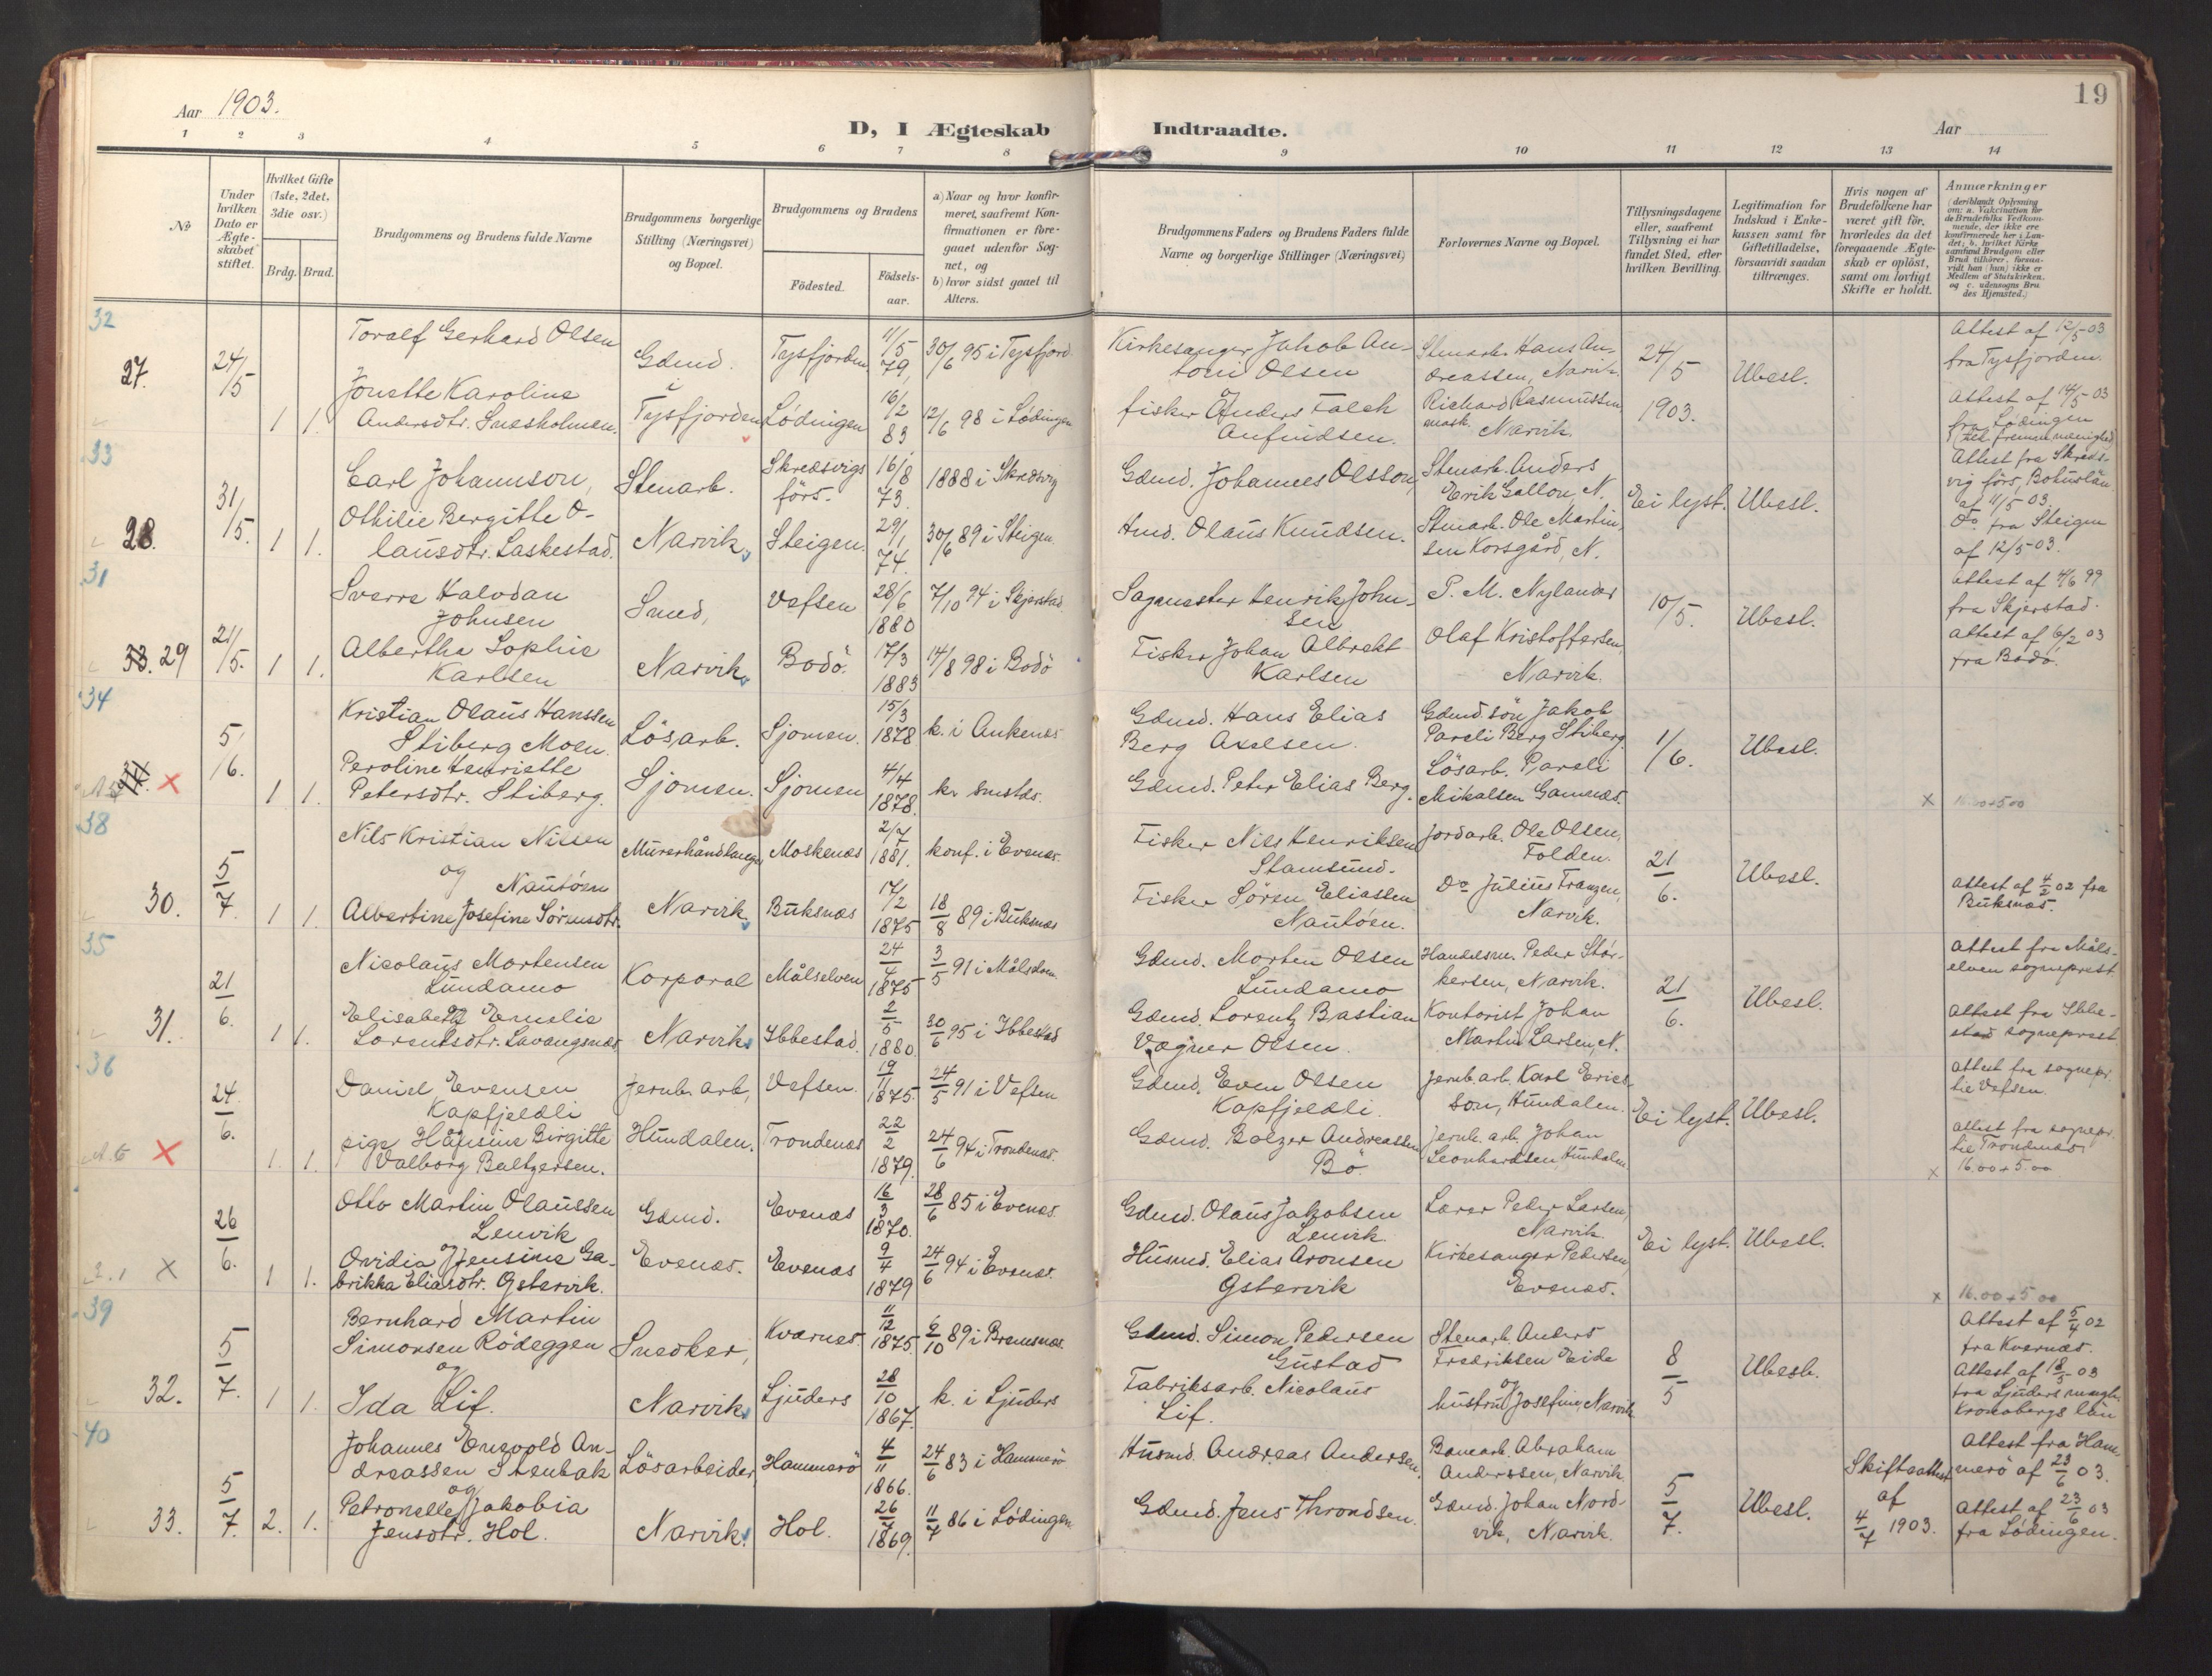 Aar 1903.
D, I Ægteskab Indtraadte.
Aar
19
1 2 3 4 5 6 7 8 9 10 11 12 13 14
No
Under hvilken Dato er Ægteskabet stiftet.
Hvilket Gifte (1ste, 2det, 3die osv.)
Brdg. Brud.
Brudgommens og Brudens fulde Navne
Brudgommens borgerlige Stilling (Næringsvei) og Bopæl.
Brudgommens og Brudens
Fødested.
Fødselsaar.
a) Naar og hvor konfirmeret, saafremt Konfirmationen er foregaaet udenfor Sognet, og
b) hvor sidst gaaet til Alters.
Brudgommens Faders og Brudens Faders fulde Navne og borgerlige Stillinger (Næringsvei)
Forlovernes Navne og Bopæl.
Tillysningsdagene eller, saafremt Tillysning ei har fundet Sted, efter hvilken Bevilling.
Legitimation for Indskud i Enkekassen samt for Giftetilladelse, forsaavidt saadan tiltrænges.
Hvis nogen af Brudefolkene har været gift før, hvorledes da det foregaaende Ægteskab er opløst, samt om lovligt Skifte er holdt.
Anmærkninger (deriblandt Oplysning om: a. Vakcination for de Brudefolks Vedkommende, der ikke ere konfirmerede her i Landet, b. hvilket Kirkesamfund Brudgom eller Brud tilhører, forsaavidt han (hun) ikke er Medlem af Statskirken. og c. udensogns Brudes Hjemsted.)
32
27. 24/5 1 1.
Toralf Gerhard Olsen
Jonette Karoline
Andersdtr. Snesholmen.
Gdmd.
i
Tysfjorden
Tysfjorden 11/5 79, 30/6 95 i Tysfjord.
Lödingen 16/2 83 12/6 98 i Lödingen
Kirkesanger Jakob An-
toni Olsen
fisker Anders Falch
Anfindsen.
Stenarb. Hans An-
dreassen, Narvik.
Richard Rasmussen
mask. Narvik.
24/5
1903.
Ubesl.
Attest af 12/5-03
fra Tysfjorden.
Attest af 14/5 03
fra Lödingen
33
28. 31/5. 1 1.
Carl Johannson,
Othilie Bergitte O-
lausdtr. Laskestad.
Stenarb.
Narvik
Skredsvigs
förs. 16/8 73. 1888 i Skredsvig
Steigen. 29/1 74. 30/6 89 i Steigen.
Gdmd. Johannes Olsson,
Hmd. Olaus Knudsen.
Stenarb. Anders
Erik Gallon, N.
Stenarb. Ole Martin-
sen Korsgård, N.
Ei lyst.
Ubesl.
Attest fra Skreds-
vig förs, Bohuslän
af 11/5 03.
Do. fra Steigen
af 12/5-03.
31
33. 29 21/5. 1 1.
Sverre Halvdan
Johnsen
Albertha Sophie
Karlsen
Smed,
Narvik
Vefsen 28/6 1880 7/10 94 i Skjerstad
Bodö. 17/3 1883 14/8 98 i Bodö
Sagmester Henrik John-
sen
Fisker Johan Albrekt
Karlsen
P. M. Nylander
Olaf Kristoffersen,
Narvik.
10/5.
Ubesl.
Attest af 4/6 99
fra Skjerstad.
attest af 6/2 03
fra Bodö.
34
5/6. 1 1.
Kristian Olaus Hanssen
Stiberg Moen.
Peroline Henriette
Petersdtr. Stiberg.
Lösarb.
Sjomen.
Sjomen. 15/3 1878 k. i Ankenæs
Sjomen 4/4 1878. k. smstds.
Gdmd. Hans Elias
Berg Axelsen.
Gdmd. Peter Elias Berg.
Gdmd.sön Jakob
Pareli Berg Stiberg.
Lösarb. Pareli
Mikalsen Gamnæs.
1/6.
Ubesl.
x 16.00+5.00
38
30. 5/7. 1 1.
Nils Kristian Nilsen
og
Nautöen
Albertine Josefine Sörensdtr.
Murerhåndlanger
Narvik.
Moskenæs 2/7 1881. konf. i Evenæs.
Buksnæs 17/2 1875 18/8 89 i Buksnæs
Fisker Nils Henriksen
Stamsund.
Fisker Sören Eliassen
Nautöen.
Jordarb. Ole Olsen,
Folden.
Do Julius Franzen,
Narvik.
21/6.
Ubesl.
attest af 4/2 02 fra
Buksnæs.
35
31. 21/6. 1 1.
Nicolaus Mortensen
Lundamo
og
Elisabeth Emelie
Lorentsdtr. Lavangsnæs
Korporal
Narvik
Målselven 24/4 1875 3/5 91 i Målselven
Ibbestad. 2/5 1880 30/6 95 i Ibbestad
Gdmd. Morten Olsen
Lundamo
Gdmd. Lorentz Bastian
Vagner Olsen.
Handelsm. Peder Stor-
kersen, Narvik.
Kontorist Johan
Martin Larsen, N.
21/6.
Ubesl.
attest fra Måls-
elven sogneprest
attest fra Ibbe-
stad sogneprest
36
24/6. 1. 1.
Daniel Evensen
Kapfjeldli
pige Hansine Birgitte
Valborg Baltzersen.
Jernb. arb,
Hundalen.
Vefsen. 19/11 1875. 24/5 91 i Vefsen
Trondenæs 22/2 1879. 24/6 94 i Trondenæs.
Gdmd. Even Olsen
Kapfjeldli.
Gdmd. Balzer Andreassen
Bö.
Jernb. arb. Karl Erics-
son, Hundalen.
Jernb. arb. Johan
Leonhardsen, Hundalen
Ei lyst.
Ubesl.
attest fra sognepr.
til Vefsen.
attest fra sognepr.
til Trondenæs.
x 16.00+5.00
26/6. 1 1.
Otto Martin Olaussen
Lenvik
og
Ovidia Jensine Ga-
brikka Eliasdtr. Østervik.
Gdmd.
Evenæs.
Evenæs 16/3 1870. 28/6 85 i Evenæs.
Evenæs 9/4 1879 24/6 94 i Evenæs.
Gdmd. Olaus Jakobsen
Lenvik.
Husmd. Elias Aronsen
Østervik
Lærer Peder Larsen,
Narvik.
Kirkesanger Pedersen,
Evenæs.
Ei lyst.
Ubesl.
x 16.00+5.00
39
32. 5/7. 1 1.
Bernhard Martin
Simonsen Rödeggen
og
Ida Lif.
Snedker,
Narvik
Kvernes. 11/12 1875. 6/10 89 i Bremsnæs.
Ljuders 28/10 1867. k. i Ljuders
Gdmd. Simon Pedersen
Gustad
Fabriksarb. Nicolaus
Lif.
Stenarb. Anders
Fredriksen Eide
og
hustru Josefine, Narvik
8/5
Ubesl.
Attest af 5/4 02
fra Kvernæs.
Attest af 18/5 03
fra Ljuders
Kronobergs län
40
33. 5/7. 2. 1.
Johannes Enevold An-
dreassen Stenbak
og
Petronelle Jakobia
Jensdtr. Hol.
Lösarbeider,
Narvik.
Hammerö 4/11 1866. 24/6 83 i Hammerö
Hol. 26/7 1869. 11/7 86 i Lödingen
Husmd. Andreas Andersen.
Gdmd. Jens Throndsen.
Banearb. Abraham
Anderssen, Narvik
Gdmd. Johan Nord-
vik, Narvik.
5/7.
Ubesl.
Skifteattest
af
4/7 1903.
Attest fra Ham-
merö af 23/6 03.
Attest af 23/6 03
fra Lödingen.